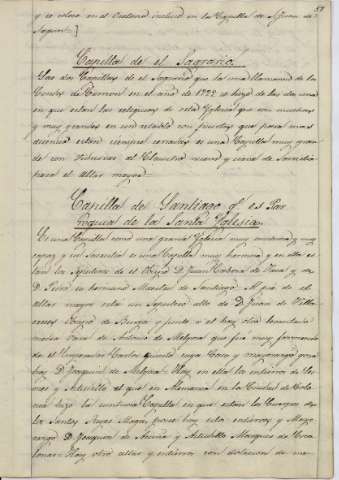 51
y se volvio en el Oratorio incluso en la Capilla de S. Juan de
Sagunt.]
Capilla de el Sagrario.
Las dos Capillas de el Sagrario que la una llamaron de los
Condes de en el año de 1722 se hizo de las dos una
en que estan las reliquias de esta Yglesia que son muchas
y muy grandes en un retablo con puertas que para mas
decencia estan siempre cerradas es una Capilla muy gran
de con vidrieras al Claustro nuevo y sirve de Sacristia
para el altar mayor.
Capilla de Santiago q.e es Par
roquia de la Santa Yglesia.
Es una Capilla como una grande Yglesia muy y muy
capaz y su Sacristia es una Capilla muy hermosa y en ella es
tan los Sepulcros de el Obispo D. Juan Cabeza de Vaca y de
D. Pedro su hermano Maestre de Santiago. Al pie de el
altar mayor esta un Sepulcro alto de D. Juan de Villa
creces Obispo de Burgos y junto a el hay otro
de Antonio de Melgosa que fue muy
de el Emperador Carlos quinto cuya Casa y mayorazgo goza
hoy D. Joaquin de Melgosa. Hay en ella los entierros de Ler
mas y Astudillo el qual en Alemania en la Ciudad de Colo
nia hizo la suntuosa Capilla en que estan los Cuerpos de
los Santos Reyes Magos, posee hoy este entierro y Mayo
razgo D. Joaquin de Acuña y Astudillo Marques de Esca
lona. Hay otros altares y entierros con dotacion de me-